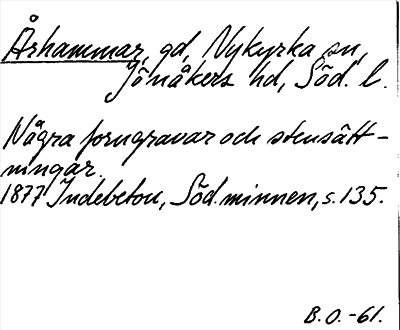 Århammar, gd, Nykyrka sn,
Jönåkers hd, Söd. l.
Några forngravar och stensätt-
ningar.
1877 Indebetou, Söd. minnen, s. 135.
B.O.-61.